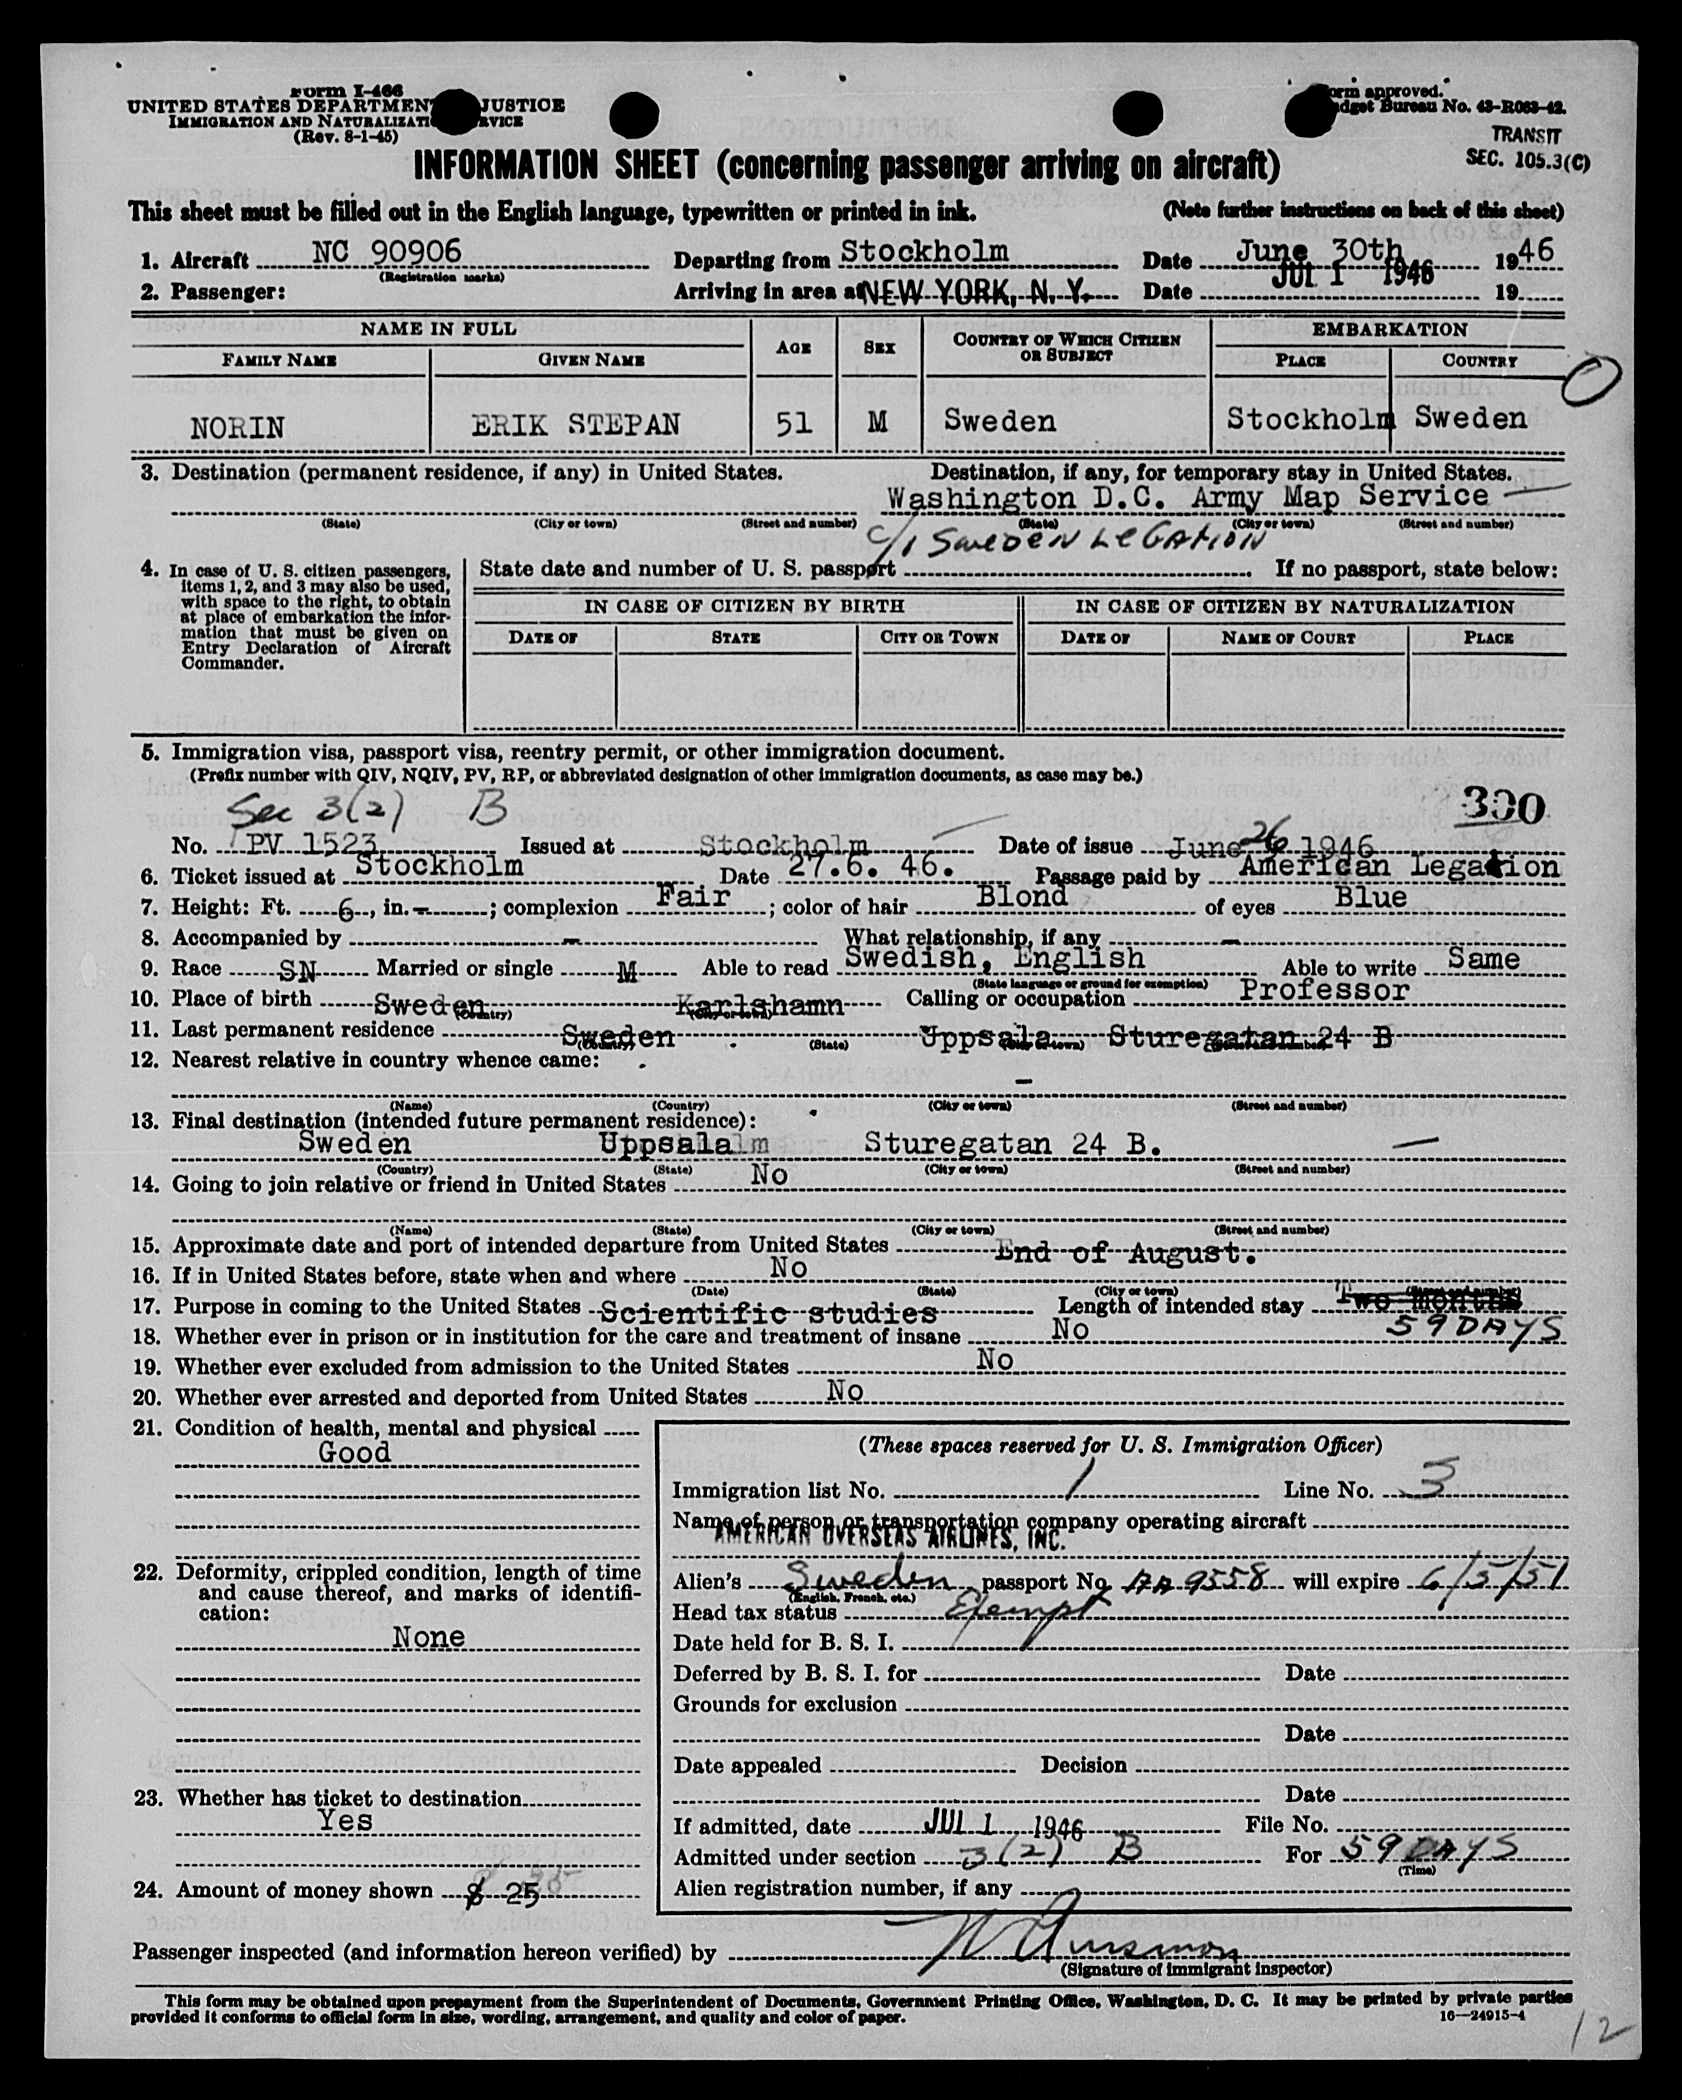 Form I-466
UNITED STATES DEPARTMENT JUSTICE
IMMIGRATION AND NATURALIZATI RVICE
(Rev. 8-1-45)
orm approved.
dget Bureau No. 43-R063-42.
TRANSIT
SEC. 105.3(C)
INFORMATION SHEET (concerning passenger arriving on aircraft)
This sheet must be filled out in the English language, typewritten or printed in ink. (Note further instructions on back of this sheet)
1. Aircraft NC 90906 Departing from Stockholm Date June 30th 1946
(Registration marks)
2. Passenger: Arriving in area at NEW YORK, N. Y. Date JUL 1 1946 19
NAME IN FULL AGE SEX COUNTRY OF WHICH CITIZEN OR SUBJECT EMBARKATION
FAMILY NAME GIVEN NAME PLACE COUNTRY
NORIN ERIK STEPAN 51 M Sweden Stockholm Sweden
3. Destination (permanent residence, if any) in United States. Destination, if any, for temporary stay in United States.
Washington D.C. Army Map Service
(State) (City or town) (Street and number) (State) (City or town) (Street and number)
c/o SWEDEN LEGATION
4. In case of U. S. citizen passengers, items 1, 2, and 3 may also be used, with space to the right, to obtain at place of embarkation the information that must be given on Entry Declaration of Aircraft Commander.
State date and number of U. S. passport If no passport, state below:
IN CASE OF CITIZEN BY BIRTH IN CASE OF CITIZEN BY NATURALIZATION
DATE OF STATE CITY OR TOWN DATE OF NAME OF COURT PLACE
5. Immigration visa, passport visa, reentry permit, or other immigration document.
(Prefix number with QIV, NQIV, PV, RP, or abbreviated designation of other immigration documents, as case may be.)
Sec 3(2) B 300
No. PV 1523 Issued at Stockholm Date of issue June 26 1946
6. Ticket issued at Stockholm Date 27.6. 46. Passage paid by American Legation
7. Height: Ft. 6, in. -; complexion Fair; color of hair Blond of eyes Blue
8. Accompanied by - What relationship, if any -
9. Race SN Married or single M Able to read Swedish, English Able to write Same
(State language or ground for exemption)
10. Place of birth Sweden Karlshamn Calling or occupation Professor
(Country) (City or town)
11. Last permanent residence Sweden Uppsala Sturegatan 24 B
(Country) (State) (City or town) (Street and number)
12. Nearest relative in country whence came:
-
(Name) (Country) (City or town) (Street and number)
13. Final destination (intended future permanent residence):
Sweden Uppsala Sturegatan 24 B. —
(Country) (State) (City or town) (Street and number)
14. Going to join relative or friend in United States No
(Name) (State) (City or town) (Street and number)
15. Approximate date and port of intended departure from United States End of August.
16. If in United States before, state when and where No
(Date) (State) (City or town) (Street and number)
17. Purpose in coming to the United States Scientific studies Length of intended stay Two months
18. Whether ever in prison or in institution for the care and treatment of insane No 59 DAYS
19. Whether ever excluded from admission to the United States No
20. Whether ever arrested and deported from United States No
21. Condition of health, mental and physical
Good
22. Deformity, crippled condition, length of time and cause thereof, and marks of identification:
None
23. Whether has ticket to destination
Yes
24. Amount of money shown $ 25
(These spaces reserved for U. S. Immigration Officer)
Immigration list No. 1 Line No. 3
Name of person or transportation company operating aircraft
AMERICAN OVERSEAS AIRLINES, INC.
Alien's Sweden passport No. AA 9558 will expire 6/5/51
(English, French, etc.)
Head tax status Exempt
Date held for B. S. I.
Deferred by B. S. I. for Date
Grounds for exclusion
Date
Date appealed Decision
Date
If admitted, date JUL 1 1946 File No.
Admitted under section 3(2) B For 59 DAYS
(Time)
Alien registration number, if any
Passenger inspected (and information hereon verified) by
(Signature of immigrant inspector)
This form may be obtained upon prepayment from the Superintendent of Documents, Government Printing Office, Washington, D. C. It may be printed by private parties
provided it conforms to official form in size, wording, arrangement, and quality and color of paper.
16—24915-4
12